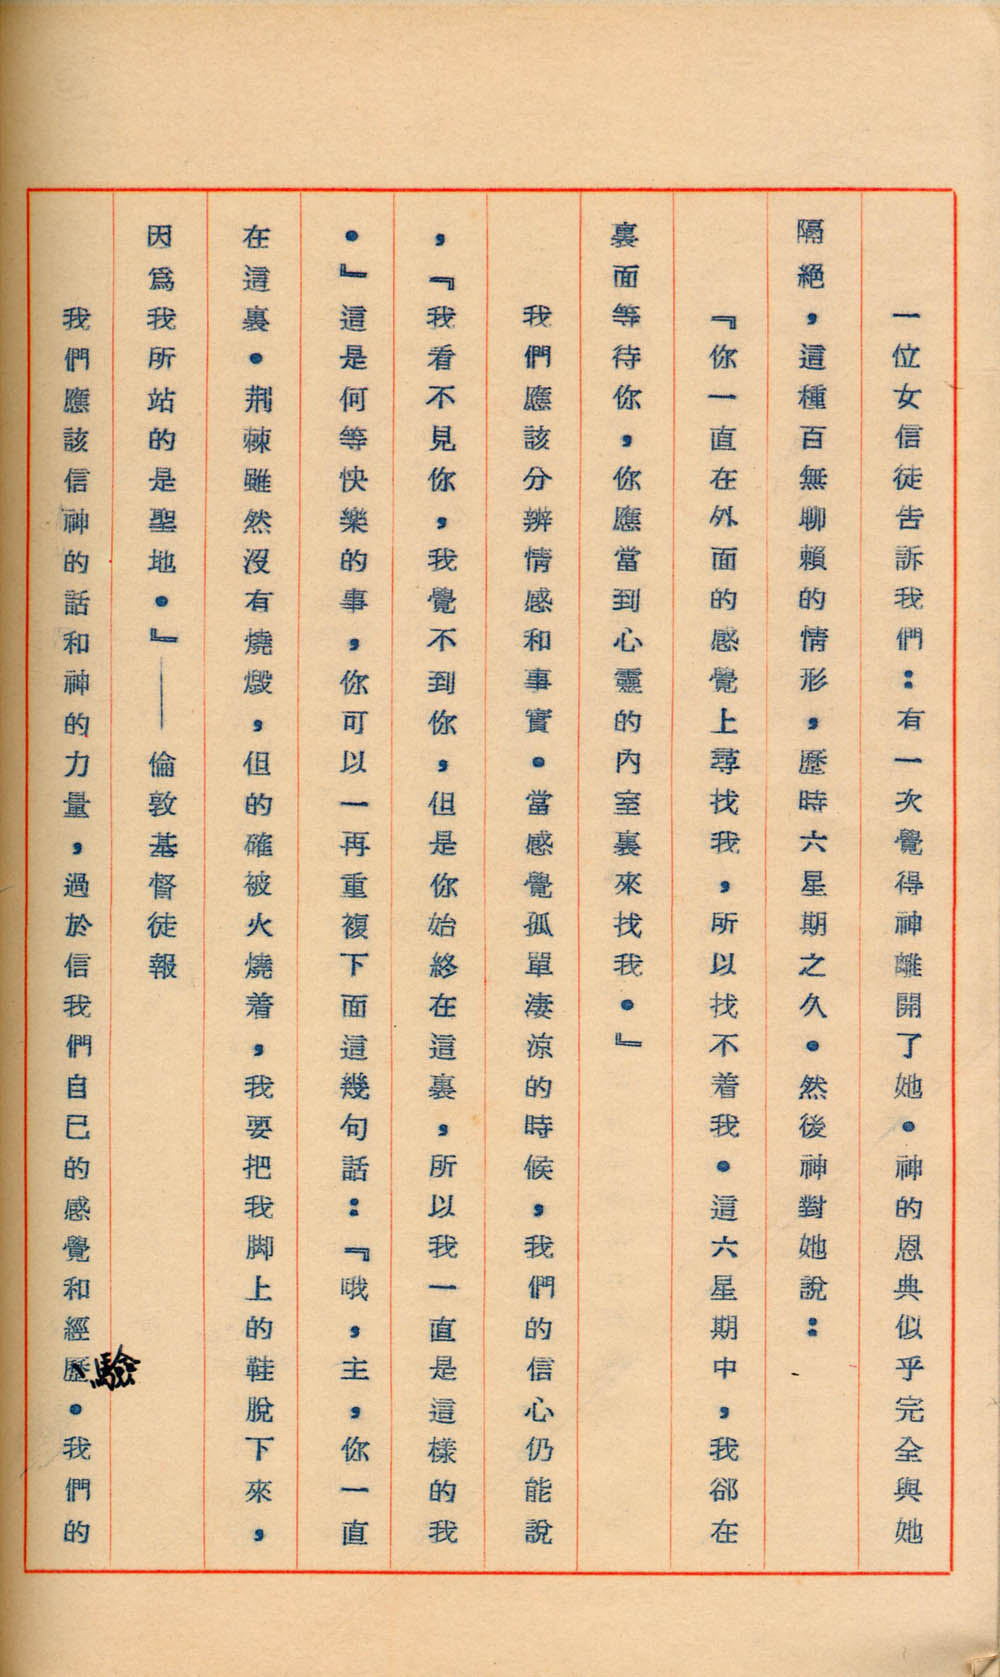 一位女信徒告訴我們：有一次覺得神離開了她。神的恩典似乎完全與她
隔絕，這種百無聊賴的情形，歷時六星期之久。然後神對她說：
『你一直在外面的感覺上尋找我，所以找不着我。這六星期中，我郤在
裏面等待你，你應當到心靈的內室裏來找我。』
我們應該分辨情感和事實。當感覺孤單淒涼的時候，我們的信心仍能說
，『我看不見你，我覺不到你，但是你始終在這裏，所以我一直是這樣的我
。』這是何等快樂的事，你可以一再重複下面這幾句話：『哦，主，你一直
在這裏。荆棘雖然沒有燒燬，但的確被火燒着，我要把我脚上的鞋脫下來，
因爲我所站的是聖地。』——倫敦基督徒報
我們應該信神的話和神的力量，過於信我們自己的感覺和經歷、驗。我們的